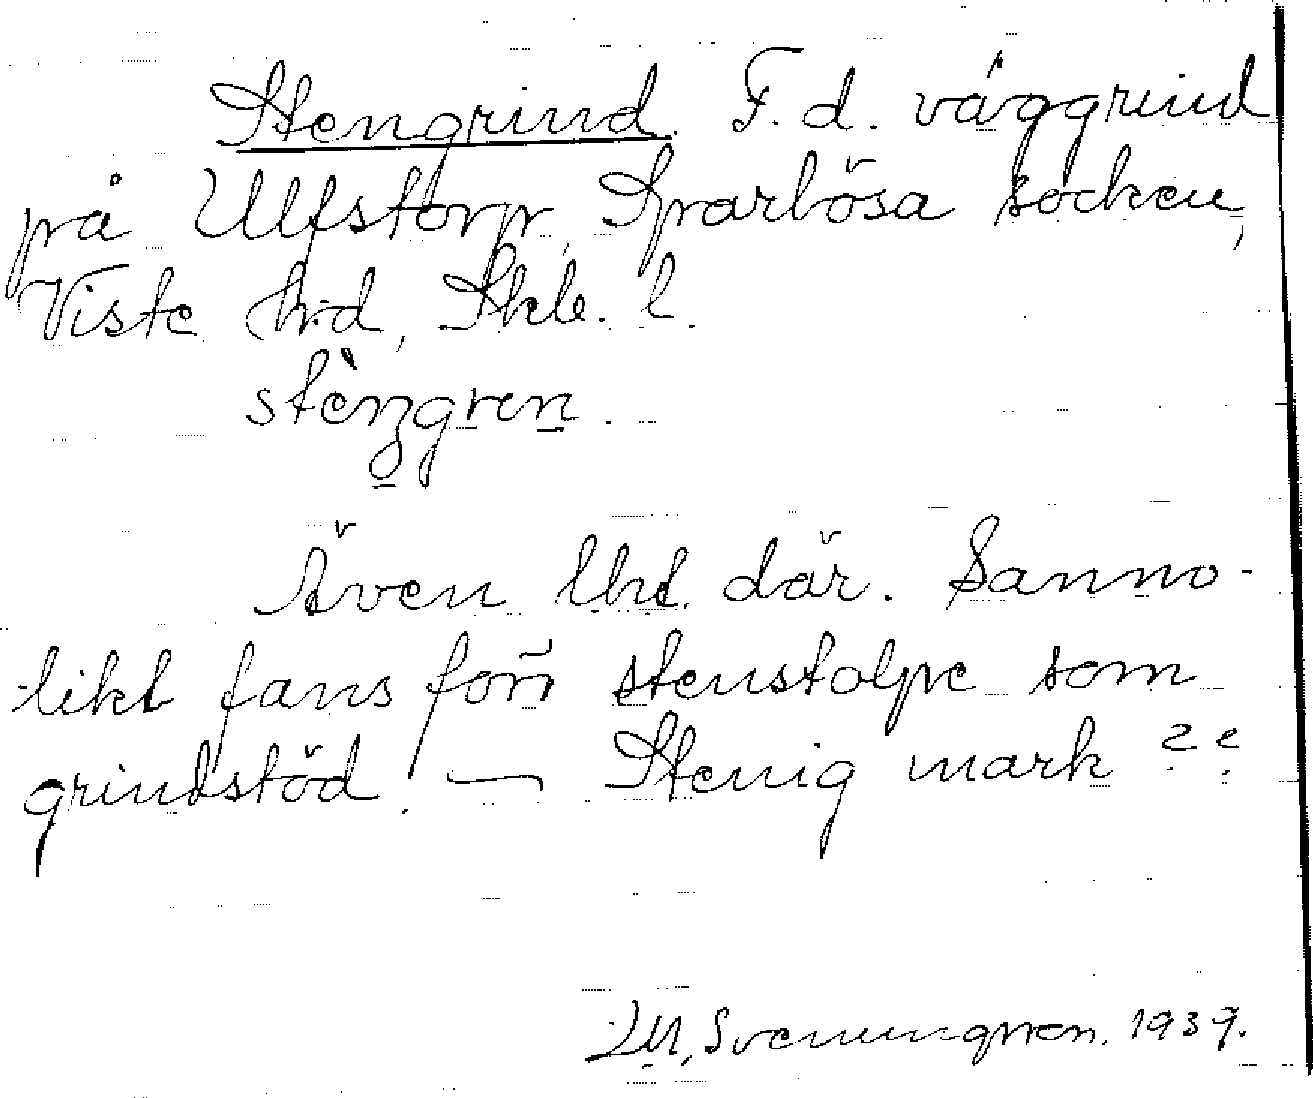 Stengrind. F. d. väggrind
på Ulfstorp, Sparlösa socken,
Viste h:d, Skb. l.
stèngren.
Även lht där. Sanno-
likt fans förr stenstolpe som
grindstöd. — Stenig mark ??
M. Svenungsson. 1939.